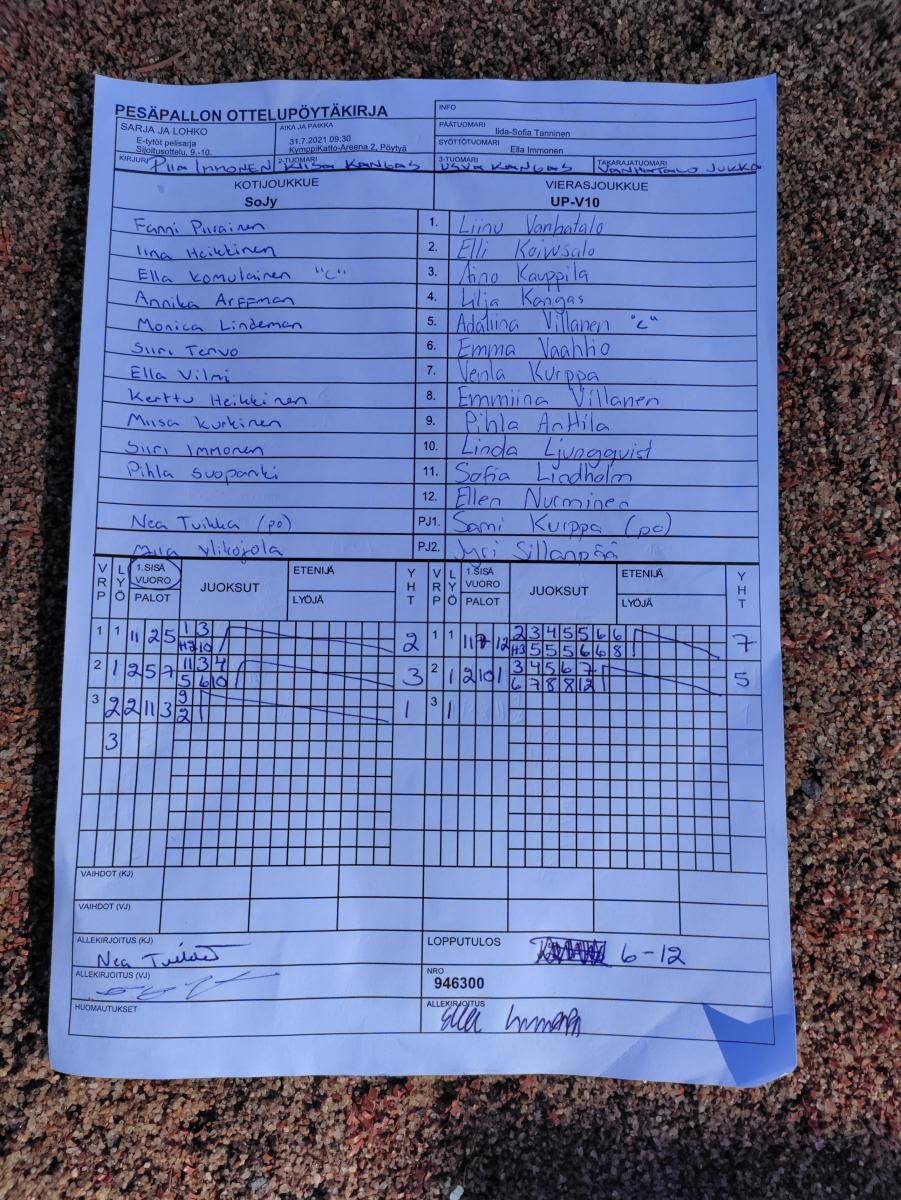 PESÄPALLON OTTELUPÖYTÄKIRJA
INFO
SARJA JA LOHKO
E-tytöt pelisarja
Sijoitusottelu, 9.-10.
AIKA JA PAIKKA
31.7.2021 09:30
KymppiKatto-Areena 2, Pöytyä
PÄÄTUOMARI
Iida-Sofia Tanninen
SYÖTTÖTUOMARI
Ella Immonen
KIRJURI PIIA IMMONEN
2-TUOMARI KANGAS
3-TUOMARI KANGAS
TAKARAJATUOMARI VANHATALO JUKKA
KOTIJOUKKUE VIERASJOUKKUE
SoJy UP-V10
Fanni Piirainen 1. Liinu Vanhatalo
Iina Heikkinen 2. Elli Koivusalo
Ella Komulainen "C" 3. Aino Kauppila
Annika Arffman 4. Lilja Kangas
Monica Lindeman 5. Adaliina Villanen "C"
Siiri Tervo 6. Emma Vaahtio
Ella Vilmi 7. Venla Kurppa
Kerttu Heikkinen 8. Emmiina Villanen
Miisa Kurkinen 9. Pihla Anttila
Siiri Immonen 10. Linda Ljungqvist
Pihla Suopanki 11. Sofia Lindholm
12. Ellen Nurminen
Nea Tuikka (po) PJ1. Sami Kurppa (po)
Ylikojola PJ2. Jyri Sillanpää
VRP LYÖ 1.SISÄ VUORO PALOT JUOKSUT ETENIJÄ LYÖJÄ YHT VRP LYÖ 1.SISÄ VUORO PALOT JUOKSUT ETENIJÄ LYÖJÄ YHT
1 1 11 2 5 1 3 2 1 1 11 7 12 2 3 4 5 5 6 6 7
H2 10 H3 5 5 5 6 6 8
2 1 2 5 7 11 3 4 3 2 1 2 10 1 3 4 5 6 7 5
5 6 10 6 7 8 8 12
3 2 2 11 3 9 1 3 1
2
3
VAIHDOT (KJ)
VAIHDOT (VJ)
ALLEKIRJOITUS (KJ)
Nea
LOPPUTULOS 6-12
ALLEKIRJOITUS (VJ)
NRO
946300
HUOMAUTUKSET
ALLEKIRJOITUS
Ella Immonen